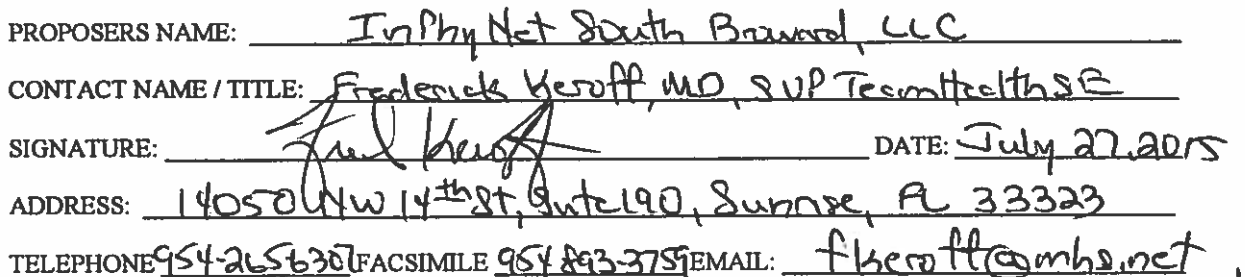 PROPOSERS NAME: InPhyNet South Broward, LLC
CONTACT NAME / TITLE: Frederick Keroff, MD, SVP TeamHealth SE
SIGNATURE: Fred Keroff DATE: July 27, 2015
ADDRESS: 14050 NW 14th St, Suite 190, Sunrise, FL 33323
TELEPHONE 954-265-6307 FACSIMILE 954 893-3759 EMAIL: fkeroff@mhs.net